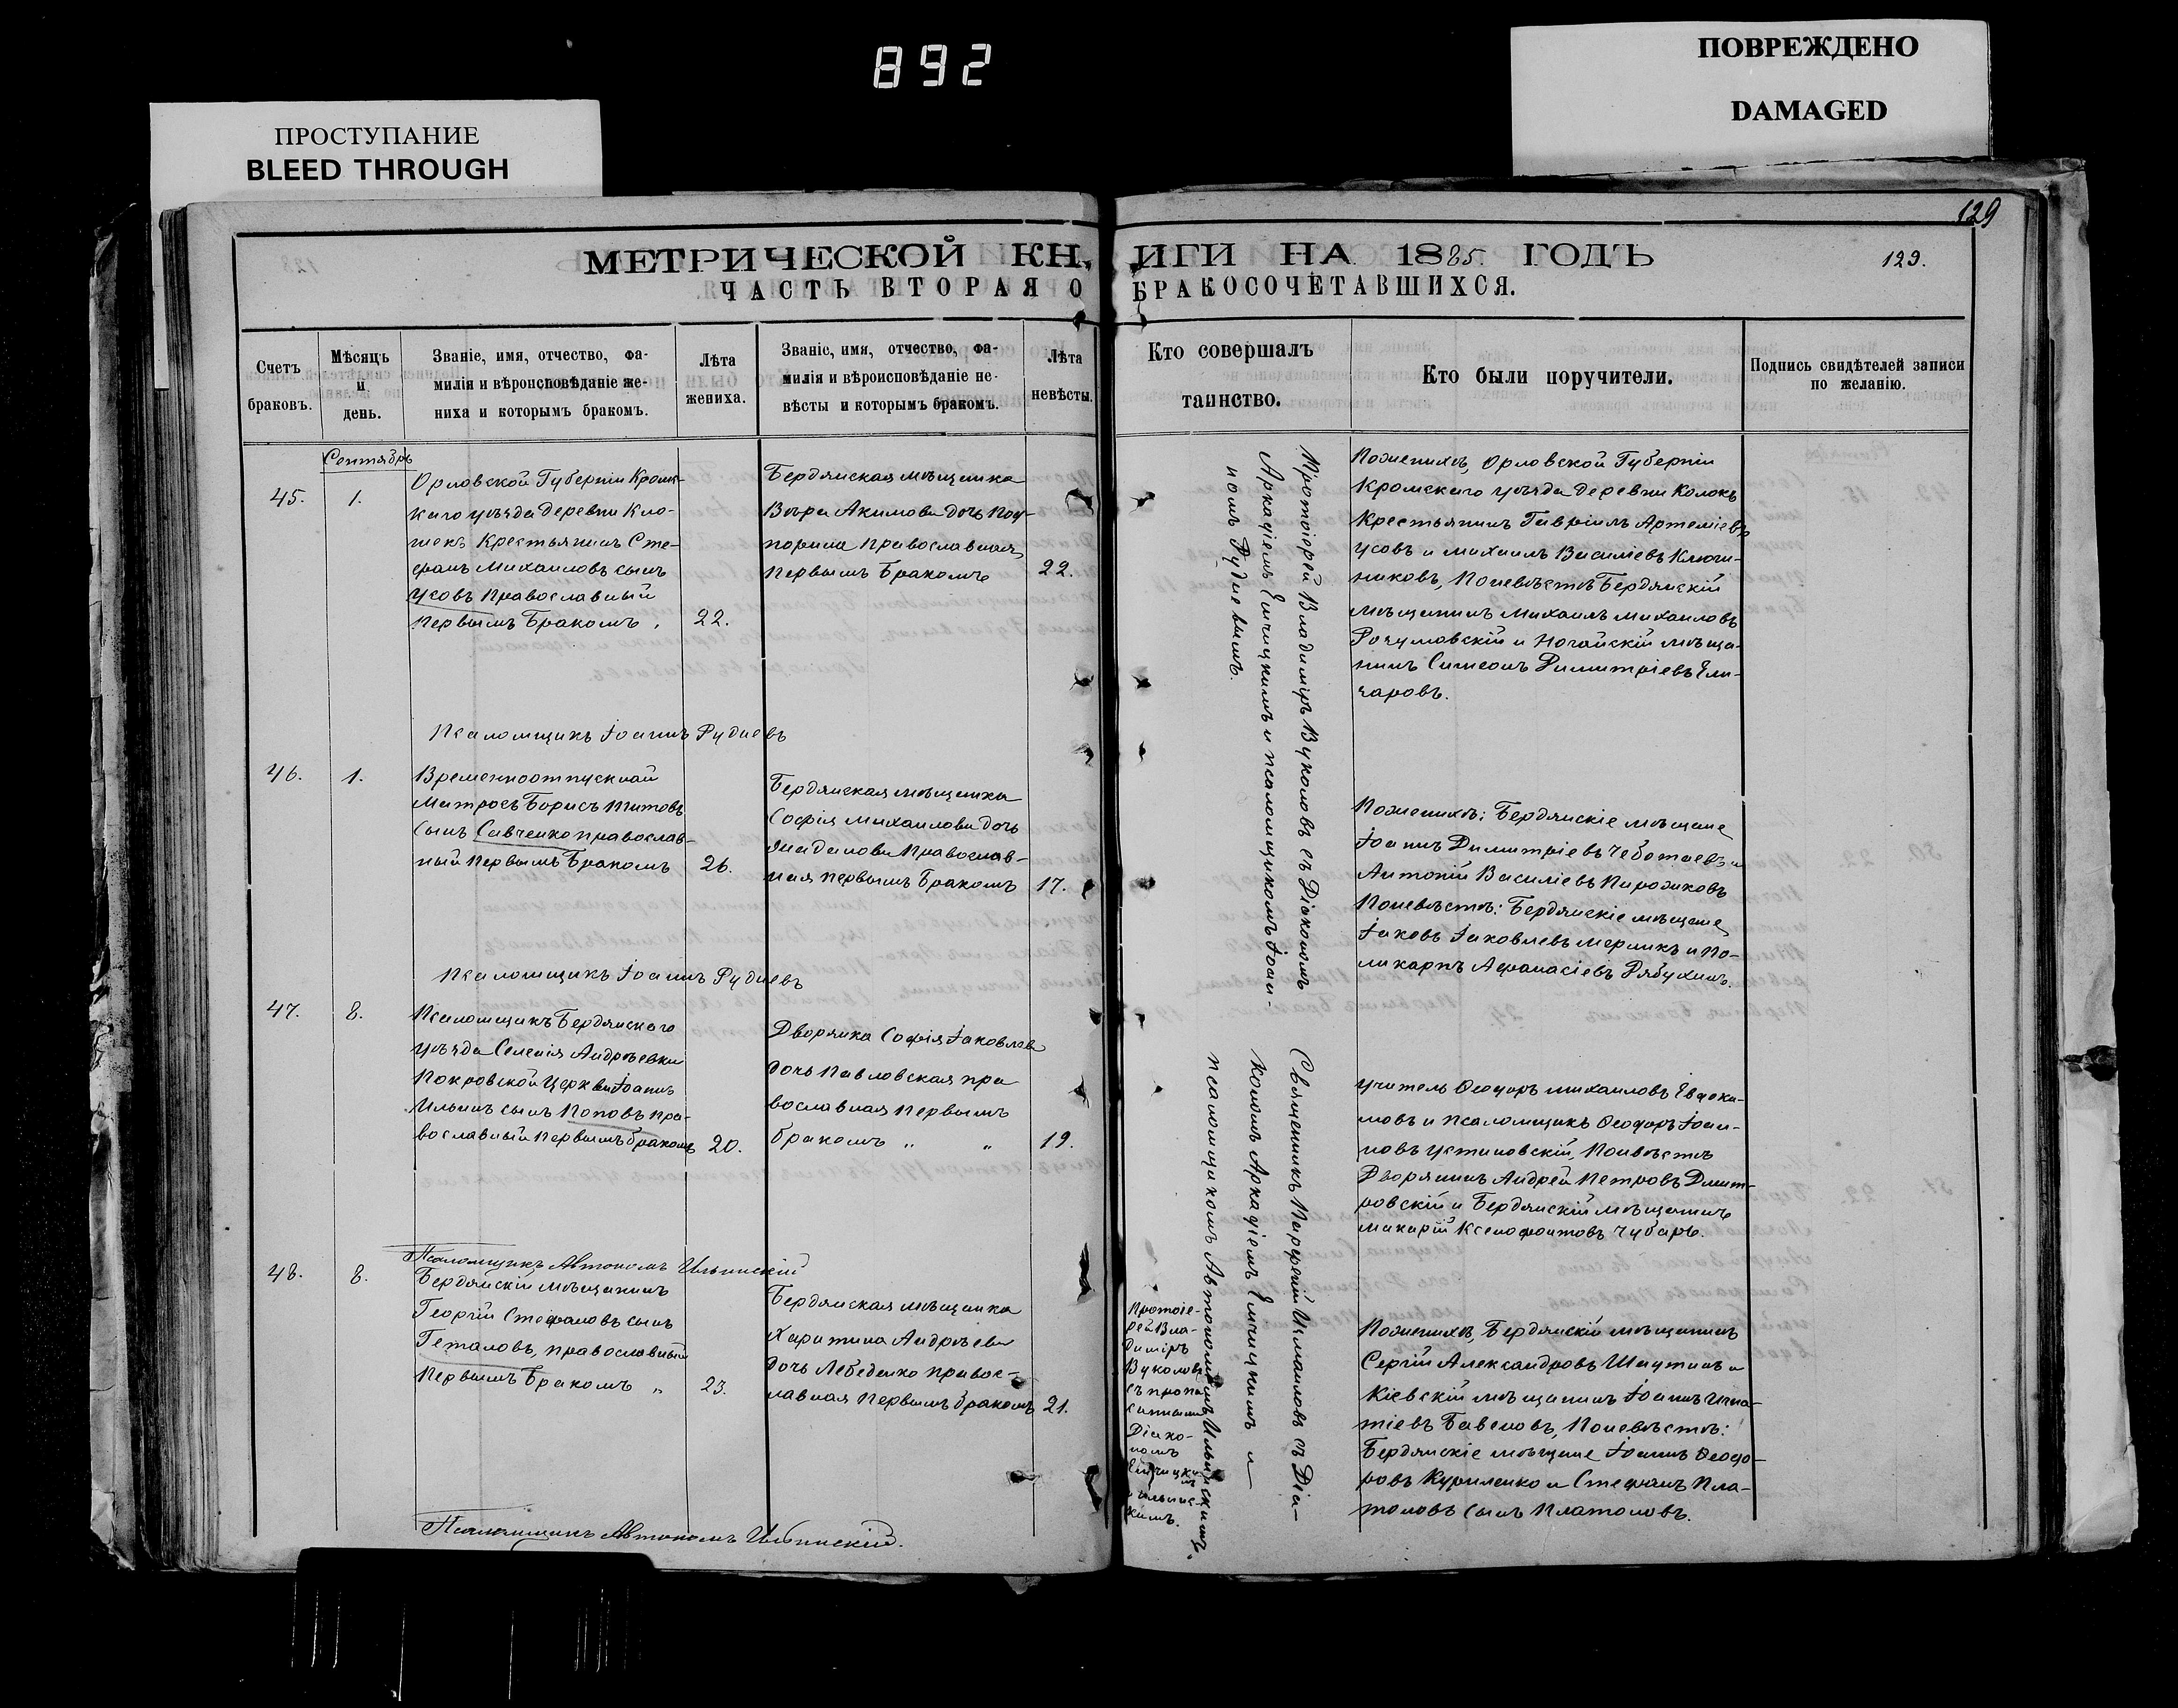 892
ПРОСТУПАНИЕ
BLEED THROUGH
ПОВРЕЖДЕНО
DAMAGED
129
МЕТРИЧЕСКОЙ КНИГИ НА 1885. ГОДЪ
129.
ЧАСТЬ ВТОРАЯ О БРАКОСОЧЕТАВШИХСЯ.
Счетъ
браковъ.
Мѣсяцъ
и
день.
Званіе, имя, отчество, фа-
милія и вѣроисповѣданіе же-
ниха и которымъ бракомъ.
Лѣта
жениха.
Званіе, имя, отчество, фа-
милія и вѣроисповѣданіе не-
вѣсты и которымъ бракомъ.
Лѣта
невѣсты.
Кто совершалъ
таинство.
Кто были поручители.
Подпись свидѣтелей записи
по желанію.
Сентябрь
45.
1.
Орловской Губерніи Кромс-
каго уѣзда деревни
Крестьянинъ Сте-
фанъ Михаиловъ сынъ
Усовъ Православный
первымъ бракомъ,
22.
Бердянская мѣщанка
Вѣра Акимова дочь
Православная
первымъ бракомъ
22.
Протоіерей Владиміръ Вуколовъ съ Діакономъ
Аркадіемъ Еличицкимъ и псаломщикомъ Іоан-
номъ Рудневымъ.
Поженихѣ, Орловской Губерніи
Кромскаго уѣзда деревни
Крестьянинъ Гавріилъ Артеміевъ
Усовъ и Михаилъ Василіевъ Ключи-
никовъ, Поневѣстѣ Бердянскій
мѣщанинъ Михаилъ Михаиловъ
и Ногайскій мѣща-
нинъ Симеонъ Димитріевъ Гли-
чаровъ.
Псаломщикъ Іоаннъ Рудневъ
46.
1.
Временноотпускной
Матросъ Борисъ Титовъ
сынъ Савченко православ-
ный первымъ бракомъ
26.
Бердянская мѣщанка
Софія Михаилова дочь
Православ-
ная первымъ бракомъ
17.
Поженихѣ: Бердянскіе мѣщане
Іоаннъ Димитріевъ Чеботаевъ и
Антоній Василіевъ Пирожковъ
Поневѣстѣ: Бердянскіе мѣщане
Іаковъ Іаковлевъ и По-
ликарпъ Афанасіевъ Рябухинъ.
Псаломщикъ Іоаннъ Рудневъ
47.
8.
Псаломщикъ Бердянскаго
уѣзда Селенія Андрѣевки
Покровской Церкви Іоаннъ
Ильинъ сынъ Поповъ пра-
вославный первымъ бракомъ
20.
Дворянка Софія Іаковлева
дочь Павловская пра
вославная первымъ
бракомъ „ „
19.
Священникъ Перфирій Исмаиловъ съ Діа-
кономъ Аркадіемъ Еличицкимъ и
псаломщикомъ Автономомъ Ильинскимъ.
Учитель Ѳеодоръ Михаиловъ Евдоки-
мовъ и псаломщикъ Ѳеодоръ Іоан-
новъ Устиновскій, Поневѣстѣ
Дворянинъ Андрей Петровъ Дмит-
ровскій и Бердянскій мѣщанинъ
Макарій Ксенофонтовъ Чубарь.
Псаломщикъ Автономъ Ильинскій
48.
8.
Бердянскій мѣщанинъ
Георгій Стефановъ сынъ
Геталовъ, православный
первымъ бракомъ „
23.
Бердянская мѣщанка
Харитина Андрѣева
дочь Лебеденко правос-
лавная первымъ бракомъ
21.
Протоіе-
рей Вла-
диміръ
Вуколовъ
Діако-
номъ
Еличицки
мъ
и Ильинс-
кимъ.
Поженихѣ Бердянскій мѣщанинъ
Сергій Александровъ и
Кіевскій мѣщанинъ Іоаннъ Игна-
тіевъ Поневѣстѣ:
Бердянскіе мѣщане Іоаннъ Ѳеодо-
ровъ Куриленко и Стефанъ Пла-
тоновъ сынъ Платоновъ.
Псаломщикъ Автономъ Ильинскій.